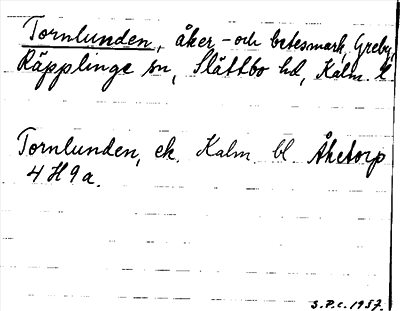 Tornlunden, åker- och betesmark, Greby,
Räpplinge sn, Slättbo hd, Kalm. l.
Tornlunden, ek. Kalm. bl. Åketorp
4 H 9 a.
S.P.C. 1957.